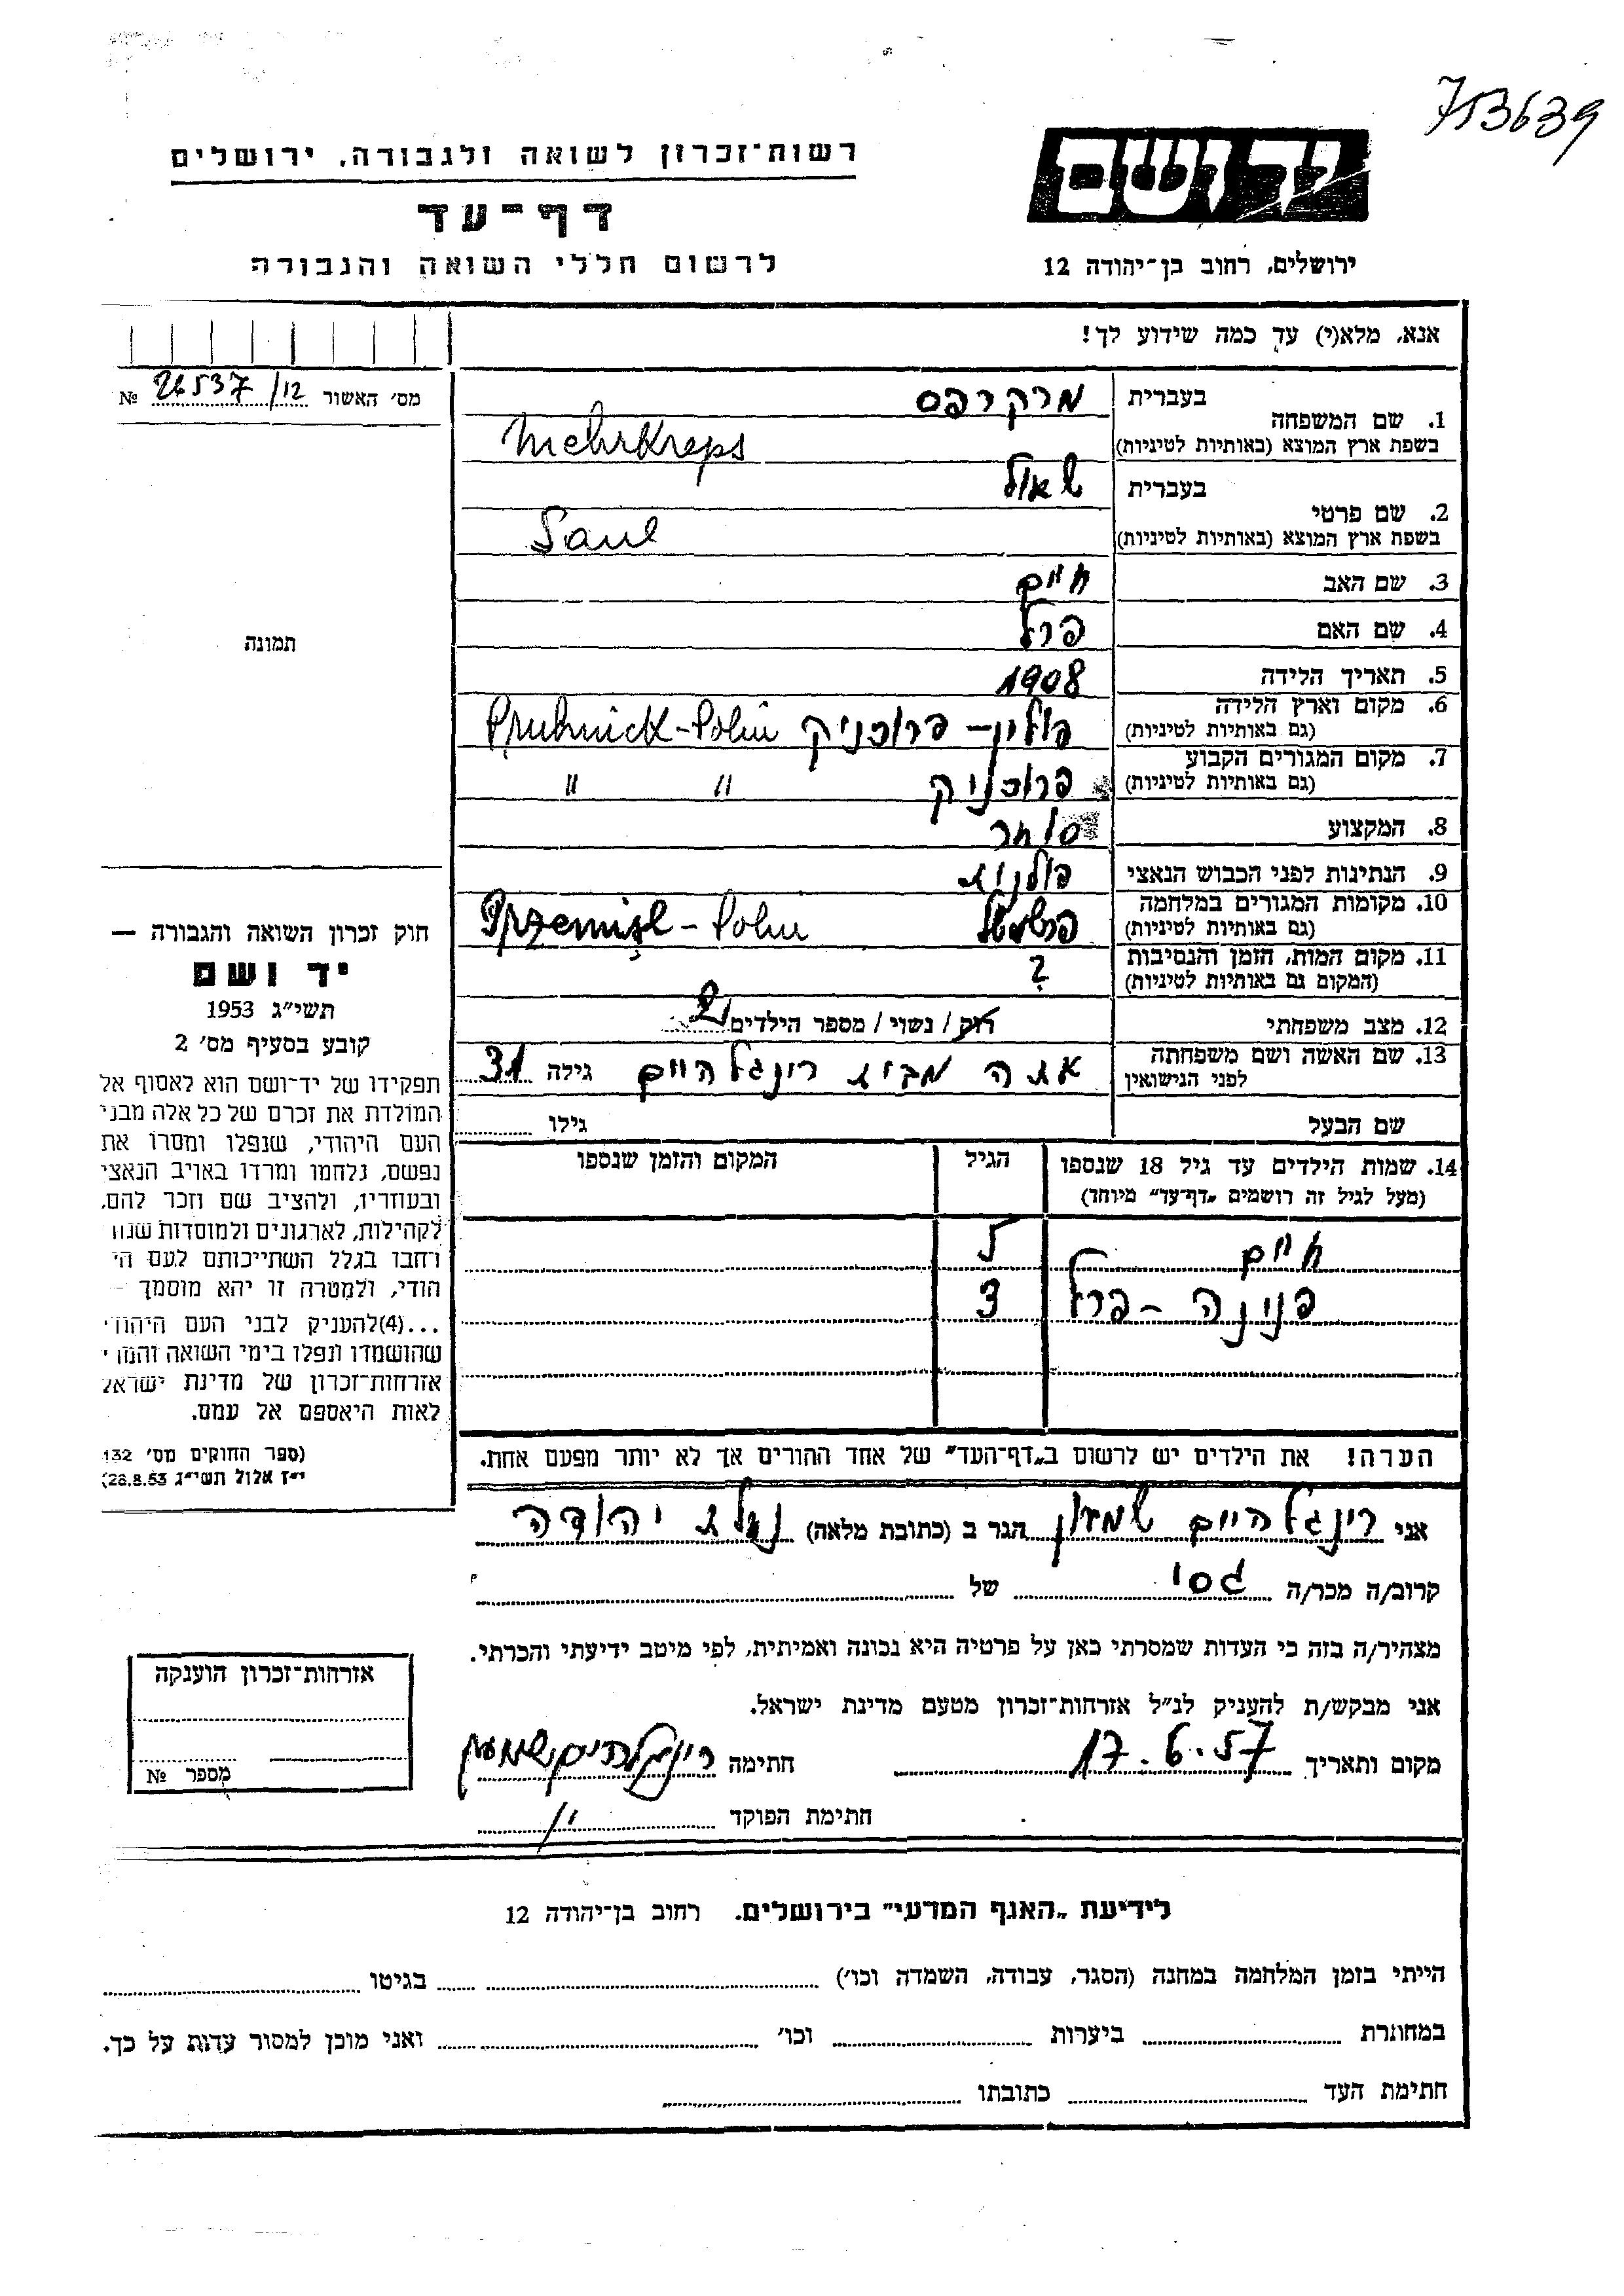 753639
יד ושם
רשות־זכרון לשואה ולגבורה, ירושלים
דף־עד
לרשום חללי השואה והגבורה
ירושלים, רחוב בן־יהודה 12
אנא, מלא(י) עד כמה שידוע לך!
מס׳ האשור 26537/12 №
1. שם המשפחה
בעברית מרקרפס
בשפת ארץ המוצא (באותיות לטיניות) Mehrkreps
2. שם פרטי
בעברית שאול
בשפת ארץ המוצא (באותיות לטיניות) Saul
3. שם האב חיים
4. שם האם פרל
5. תאריך הלידה 1908
6. מקום וארץ הלידה
(גם באותיות לטיניות) פולין – פרוכניק Pruhnick - Polin
7. מקום המגורים הקבוע
(גם באותיות לטיניות) פרוכניק " "
8. המקצוע סוחר
9. הנתינות לפני הכבוש הנאצי פולנית
10. מקומות המגורים במלחמה
(גם באותיות לטיניות) Przemisl - Polin
11. מקום המות, הזמן והנסיבות
(המקום גם באותיות לטיניות) ?
12. מצב משפחתי רוק / נשוי / מספר הילדים 2
13. שם האשה ושם משפחתה
לפני הנישואין אתה מבית רינגלהיים גילה 31
שם הבעל גילו
14. שמות הילדים עד גיל 18 שנספו
(מעל לגיל זה רושמים „דף־עד" מיוחד)
הגיל
המקום והזמן שנספו
חיים 5
פנינה – פרל 3
הערה! את הילדים יש לרשום ב„דף־העד" של אחד ההורים אך לא יותר מפעם אחת.
תמונה
חוק זכרון השואה והגבורה —
יד ושם
תשי״ג 1953
קובע בסעיף מס׳ 2
תפקידו של יד־ושם הוא לאסוף אל
המולדת את זכרם של כל אלה מבני
העם היהודי, שנפלו ומסרו את
נפשם, נלחמו ומרדו באויב הנאצי
ובעוזריו, ולהציב שם וזכר להם,
לקהילות, לארגונים ולמוסדות שנח
רחבו בגלל השתייכותם לעם הי
הודי, ולמטרה זו יהא מוסמך –
...(4)להעניק לבני העם היהודי
שהושמדו ונפלו בימי השואה והמרי
אזרחות־זכרון של מדינת ישראל
לאות היאספם אל עמם.
(ספר החוקים מס׳ 132
י״ז אלול תשי״ג 28.8.53)
אני רינגלהיים שמעון הגר ב (כתובת מלאה) נחלת יהודה
קרוב/ה מכר/ה גסי של
מצהיר/ה בזה כי העדות שמסרתי כאן על פרטיה היא נכונה ואמיתית, לפי מיטב ידיעתי והכרתי.
אני מבקש/ת להעניק לנ״ל אזרחות־זכרון מטעם מדינת ישראל.
מקום ותאריך 17.6.57 חתימה רינגלהיים שמעון
חתימת הפוקד
אזרחות־זכרון הוענקה
מספר №
לידיעת „האגף המדעי" בירושלים, רחוב בן־יהודה 12
הייתי בזמן המלחמה במחנה (הסגר, עבודה, השמדה וכו׳) בגיטו
במחתרת ביערות וכו׳ ואני מוכן למסור עדות על כך.
חתימת העד כתובתו